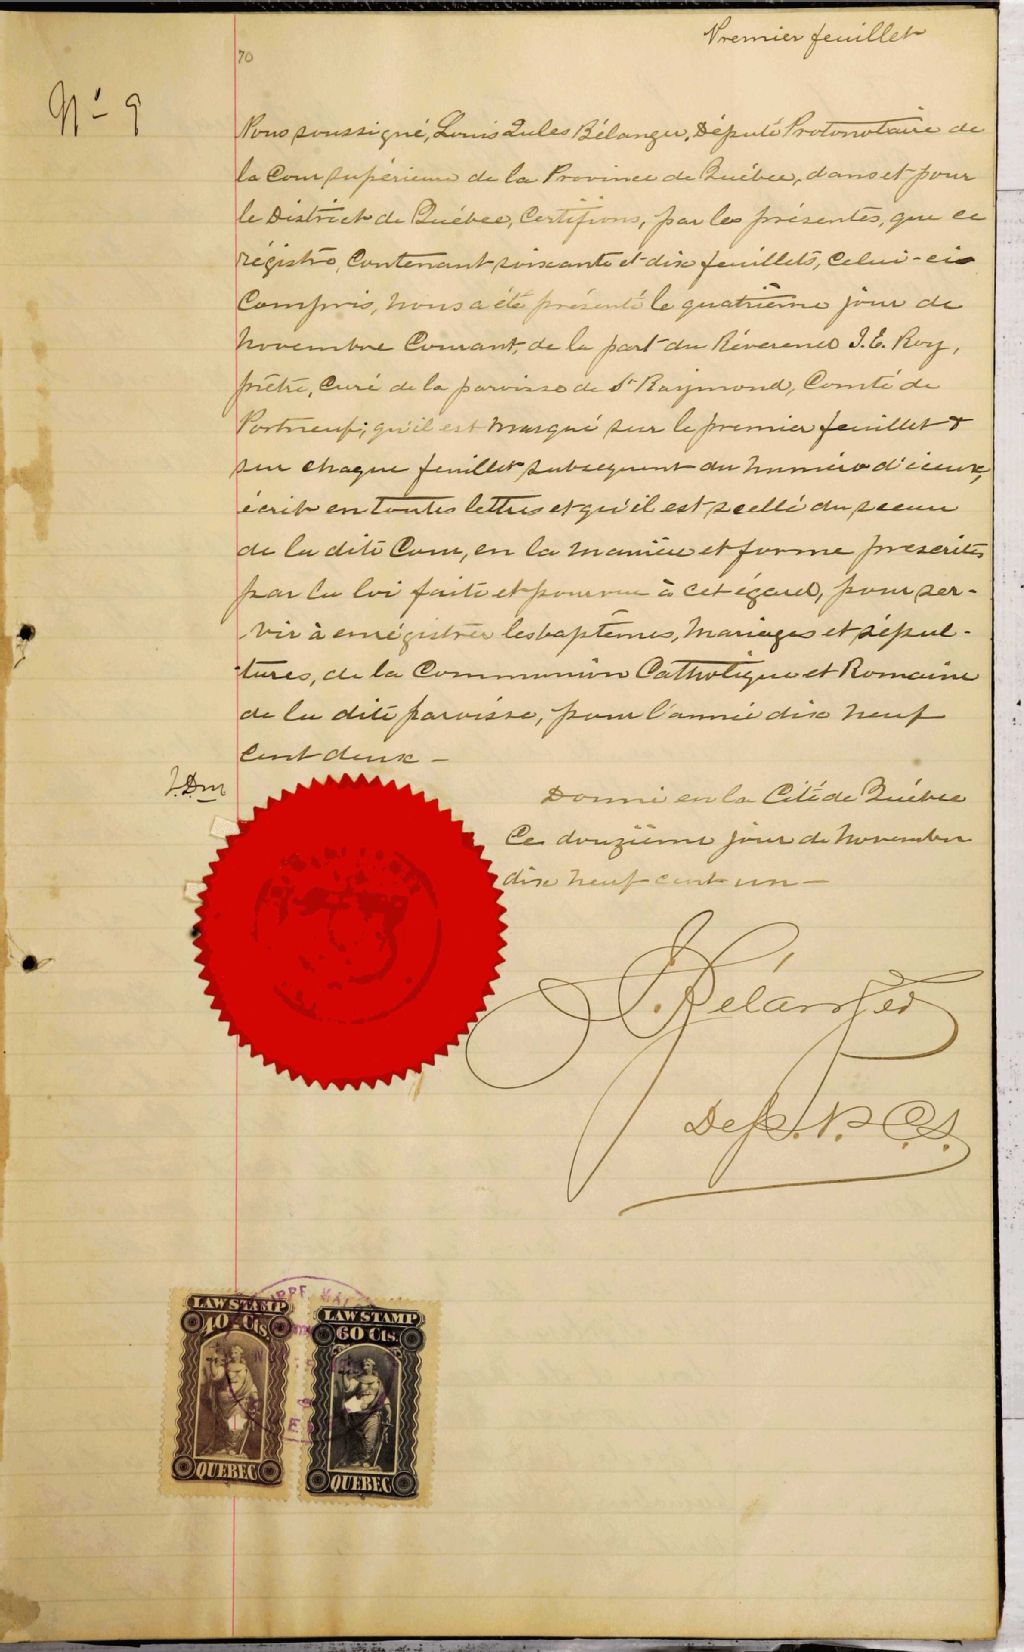 Premier feuillet
70
No 9
Nous soussigné, Louis Jules Bélanger, Député Protonotaire de
la Cour supérieure de la Province de Québec, dans et pour
le District de Québec, Certifions, par les présentes, que ce
régistre, Contenant soixante et dix feuillets, celui-ci
Compris, nous a été présenté le quatrième jour de
Novembre Courant, de la part du Révérend J. E. Roy,
prêtre, Curé de la paroisse de St Raymond, Comté de
Portneuf; qu'il est marqué sur le premier feuillet &
sur chaque feuillet subséquent du numéro d'iceux,
écrit en toutes lettres et qu'il est scellé du sceau
de la dite Cour, en la manière et forme prescrites
par la loi faite et pourvue à cet égard, pour ser-
vir à enrégistrer les baptêmes, Mariages et sépul-
tures, de la Communion Catholique et Romaine
de la dite paroisse, pour l'année dix neuf
cent deux -
Donné en la Cité de Québec
Ce douzième jour de novembre
dix neuf cent un -
J. Bélanger
Dep. P. C. S.
LAW STAMP
40 Cts.
QUEBEC
LAW STAMP
60 Cts.
QUEBEC